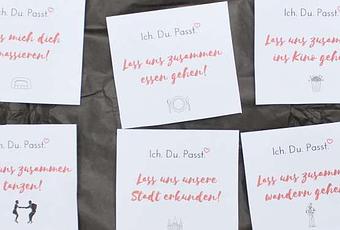 Du. Passt.
mich dich
massieren!
Ich. Du. Passt.
Lass uns zusammen
essen gehen!
Ich. Du. Passt.
Lass uns zusammen
ins Kino
Du. Passt.
uns zusammen
tanzen!
Ich. Du. Passt.
Lass uns unsere
Stadt erkunden!
Ich. Du. Passt.
Lass uns zusammen
wandern